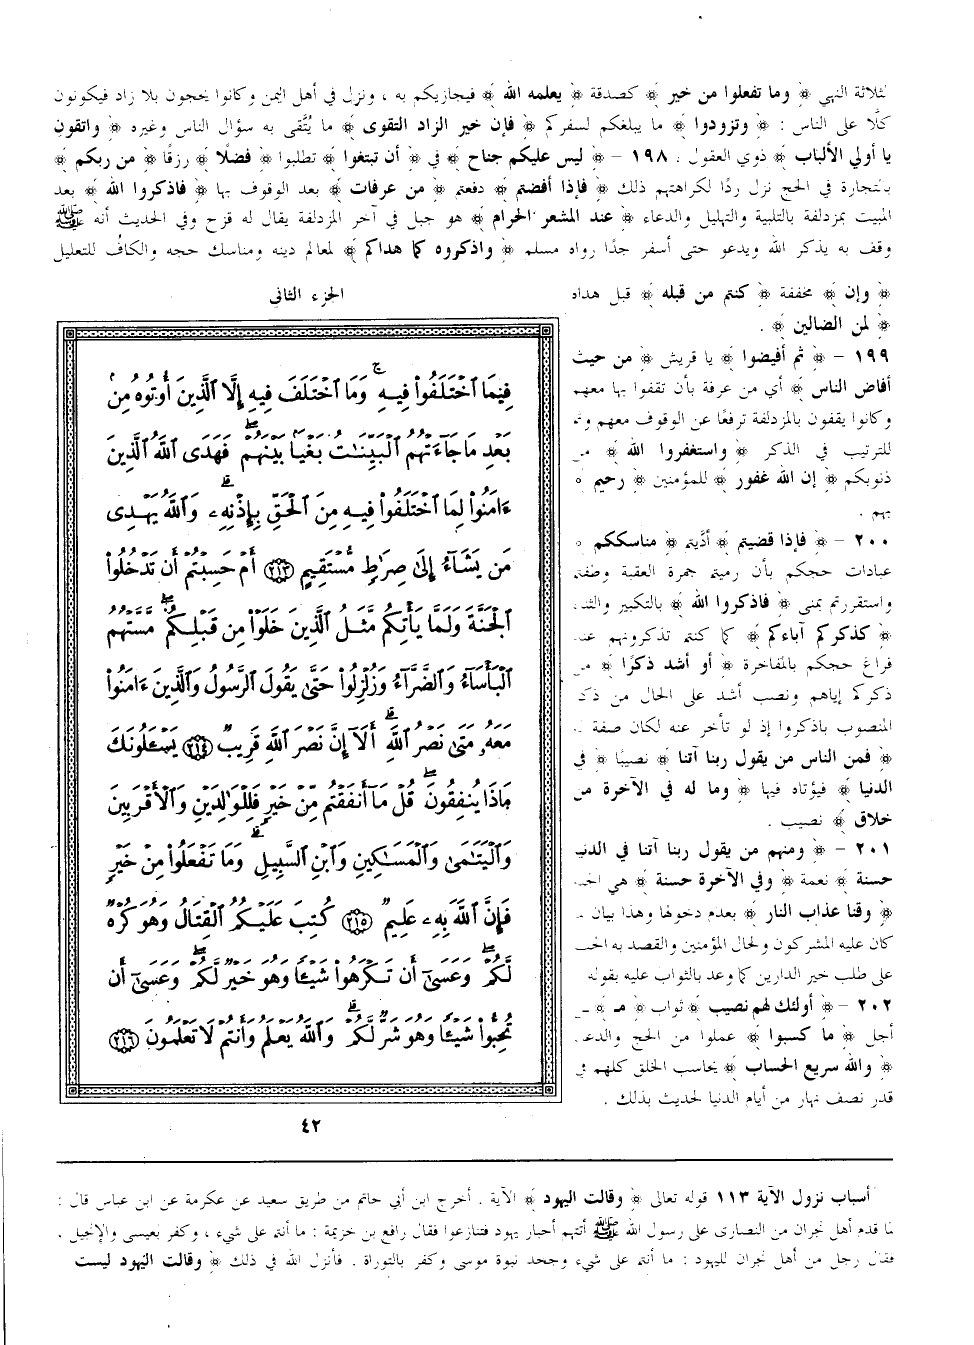 لثلاثة النهي ﴿ وما تفعلوا من خير ﴾ كصدقة ﴿ يعلمه الله ﴾ فيجازيكم به ، ونزل في أهل اليمن وكانوا يحجون بلا زاد فيكونون
كلًا على الناس : ﴿ وتزودوا ﴾ ما يبلغكم لسفركم ﴿ فإن خير الزاد التقوى ﴾ ما يُتَّقى به سؤال الناس وغيره ﴿ واتقون
يا أولي الألباب ﴾ ذوي العقول . ١٩٨ – ﴿ ليس عليكم جناح ﴾ في ﴿ أن تبتغوا ﴾ تطلبوا ﴿ فضلًا ﴾ رزقًا ﴿ من ربكم ﴾
بالتجارة في الحج نزل ردًا لكراهتهم ذلك ﴿ فإذا أفضتم ﴾ دفعتم ﴿ من عرفات ﴾ بعد الوقوف بها ﴿ فاذكروا الله ﴾ بعد
المبيت بمزدلفة بالتلبية والتهليل والدعاء ﴿ عند المشعر الحرام ﴾ هو جبل في آخر المزدلفة يقال له قزح وفي الحديث أنه ﷺ
وقف به يذكر الله ويدعو حتى أسفر جدًا رواه مسلم ﴿ واذكروه كما هداكم ﴾ لمعالم دينه ومناسك حجه والكافُ للتعليل
﴿ وإن ﴾ مخففة ﴿ كنتم من قبله ﴾ قبل هداه
﴿ لمن الضالين ﴾ .
١٩٩ – ﴿ ثم أفيضوا ﴾ يا قريش ﴿ من حيث
أفاض الناس ﴾ أي من عرفة بأن تقفوا بها معهم
وكانوا يقفون بالمزدلفة ترفعًا عن الوقوف معهم وثم
للترتيب في الذكر ﴿ واستغفروا الله ﴾ من
ذنوبكم ﴿ إن الله غفور ﴾ للمؤمنين ﴿ رحيم ﴾
بهم .
٢٠٠ – ﴿ فإذا قضيتم ﴾ أدَّيتم ﴿ مناسككم ﴾
عبادات حجكم بأن رميتم جمرة العقبة وطفتم
واستقررتم بمنى ﴿ فاذكروا الله ﴾ بالتكبير
﴿ كذكركم آباءكم ﴾ كما كنتم تذكرونهم عند
فراغ حجكم بالمفاخرة ﴿ أو أشد ذكرًا ﴾ من
ذكركم إياهم ونصب أشد على الحال من ذكر
المنصوب باذكروا إذ لو تأخر عنه لكان صفة
﴿ فمن الناس من يقول ربنا آتنا ﴾ نصيبًا ﴿ في
الدنيا ﴾ فيؤتاه فيها ﴿ وما له في الآخرة من
خلاق ﴾ نصيب .
٢٠١ – ﴿ ومنهم من يقول ربنا آتنا في الدنيا
حسنة ﴾ نعمة ﴿ وفي الآخرة حسنة ﴾ هي
﴿ وقنا عذاب النار ﴾ بعدم دخولها وهذا بيان
كان عليه المشركون ولحال المؤمنين والقصد به
على طلب خير الدارين كما وعد بالثواب عليه بقوله
٢٠٢ – ﴿ أولئك لهم نصيب ﴾ ثواب ﴿ مـ ﴾
أجل ﴿ ما كسبوا ﴾ عملوا من الحج والدعاء
﴿ والله سريع الحساب ﴾ يحاسب الخلق كلهم في
قدر نصف نهار من أيام الدنيا لحديث بذلك .
الجزء الثانى
فِيمَا ٱخْتَلَفُوا۟ فِيهِ ۚ وَمَا ٱخْتَلَفَ فِيهِ إِلَّا ٱلَّذِينَ أُوتُوهُ مِنۢ
بَعْدِ مَا جَآءَتْهُمُ ٱلْبَيِّنَـٰتُ بَغْيًۢا بَيْنَهُمْ ۖ فَهَدَى ٱللَّهُ ٱلَّذِينَ
ءَامَنُوا۟ لِمَا ٱخْتَلَفُوا۟ فِيهِ مِنَ ٱلْحَقِّ بِإِذْنِهِۦ ۗ وَٱللَّهُ يَهْدِى
مَن يَشَآءُ إِلَىٰ صِرَٰطٍ مُّسْتَقِيمٍ ٢١٣ أَمْ حَسِبْتُمْ أَن تَدْخُلُوا۟
ٱلْجَنَّةَ وَلَمَّا يَأْتِكُم مَّثَلُ ٱلَّذِينَ خَلَوْا۟ مِن قَبْلِكُم ۖ مَّسَّتْهُمُ
ٱلْبَأْسَآءُ وَٱلضَّرَّآءُ وَزُلْزِلُوا۟ حَتَّىٰ يَقُولَ ٱلرَّسُولُ وَٱلَّذِينَ ءَامَنُوا۟
مَعَهُۥ مَتَىٰ نَصْرُ ٱللَّهِ ۗ أَلَآ إِنَّ نَصْرَ ٱللَّهِ قَرِيبٌ ٢١٤ يَسْـَٔلُونَكَ
مَاذَا يُنفِقُونَ ۖ قُلْ مَآ أَنفَقْتُم مِّنْ خَيْرٍ فَلِلْوَٰلِدَيْنِ وَٱلْأَقْرَبِينَ
وَٱلْيَتَـٰمَىٰ وَٱلْمَسَـٰكِينِ وَٱبْنِ ٱلسَّبِيلِ ۗ وَمَا تَفْعَلُوا۟ مِنْ خَيْرٍ
فَإِنَّ ٱللَّهَ بِهِۦ عَلِيمٌ ٢١٥ كُتِبَ عَلَيْكُمُ ٱلْقِتَالُ وَهُوَ كُرْهٌ
لَّكُمْ ۖ وَعَسَىٰٓ أَن تَكْرَهُوا۟ شَيْـًٔا وَهُوَ خَيْرٌ لَّكُمْ ۖ وَعَسَىٰٓ أَن
تُحِبُّوا۟ شَيْـًٔا وَهُوَ شَرٌّ لَّكُمْ ۗ وَٱللَّهُ يَعْلَمُ وَأَنتُمْ لَا تَعْلَمُونَ ٢١٦
٤٢
أسباب نزول الآية ١١٣ قوله تعالى ﴿ وقالت اليهود ﴾ الآية . أخرج ابن أبي حاتم من طريق سعيد عن عكرمة عن ابن عباس قال :
لما قدم أهل نجران من النصارى على رسول الله ﷺ أتتهم أحبار يهود فتنازعوا فقال رافع بن خزيمة : ما أنتم على شيء ، وكفر بعيسى والإنجيل .
فقال رجل من أهل نجران لليهود : ما أنتم على شيء وجحد نبوة موسى وكفر بالتوراة . فأنزل الله في ذلك ﴿ وقالت اليهود ليست